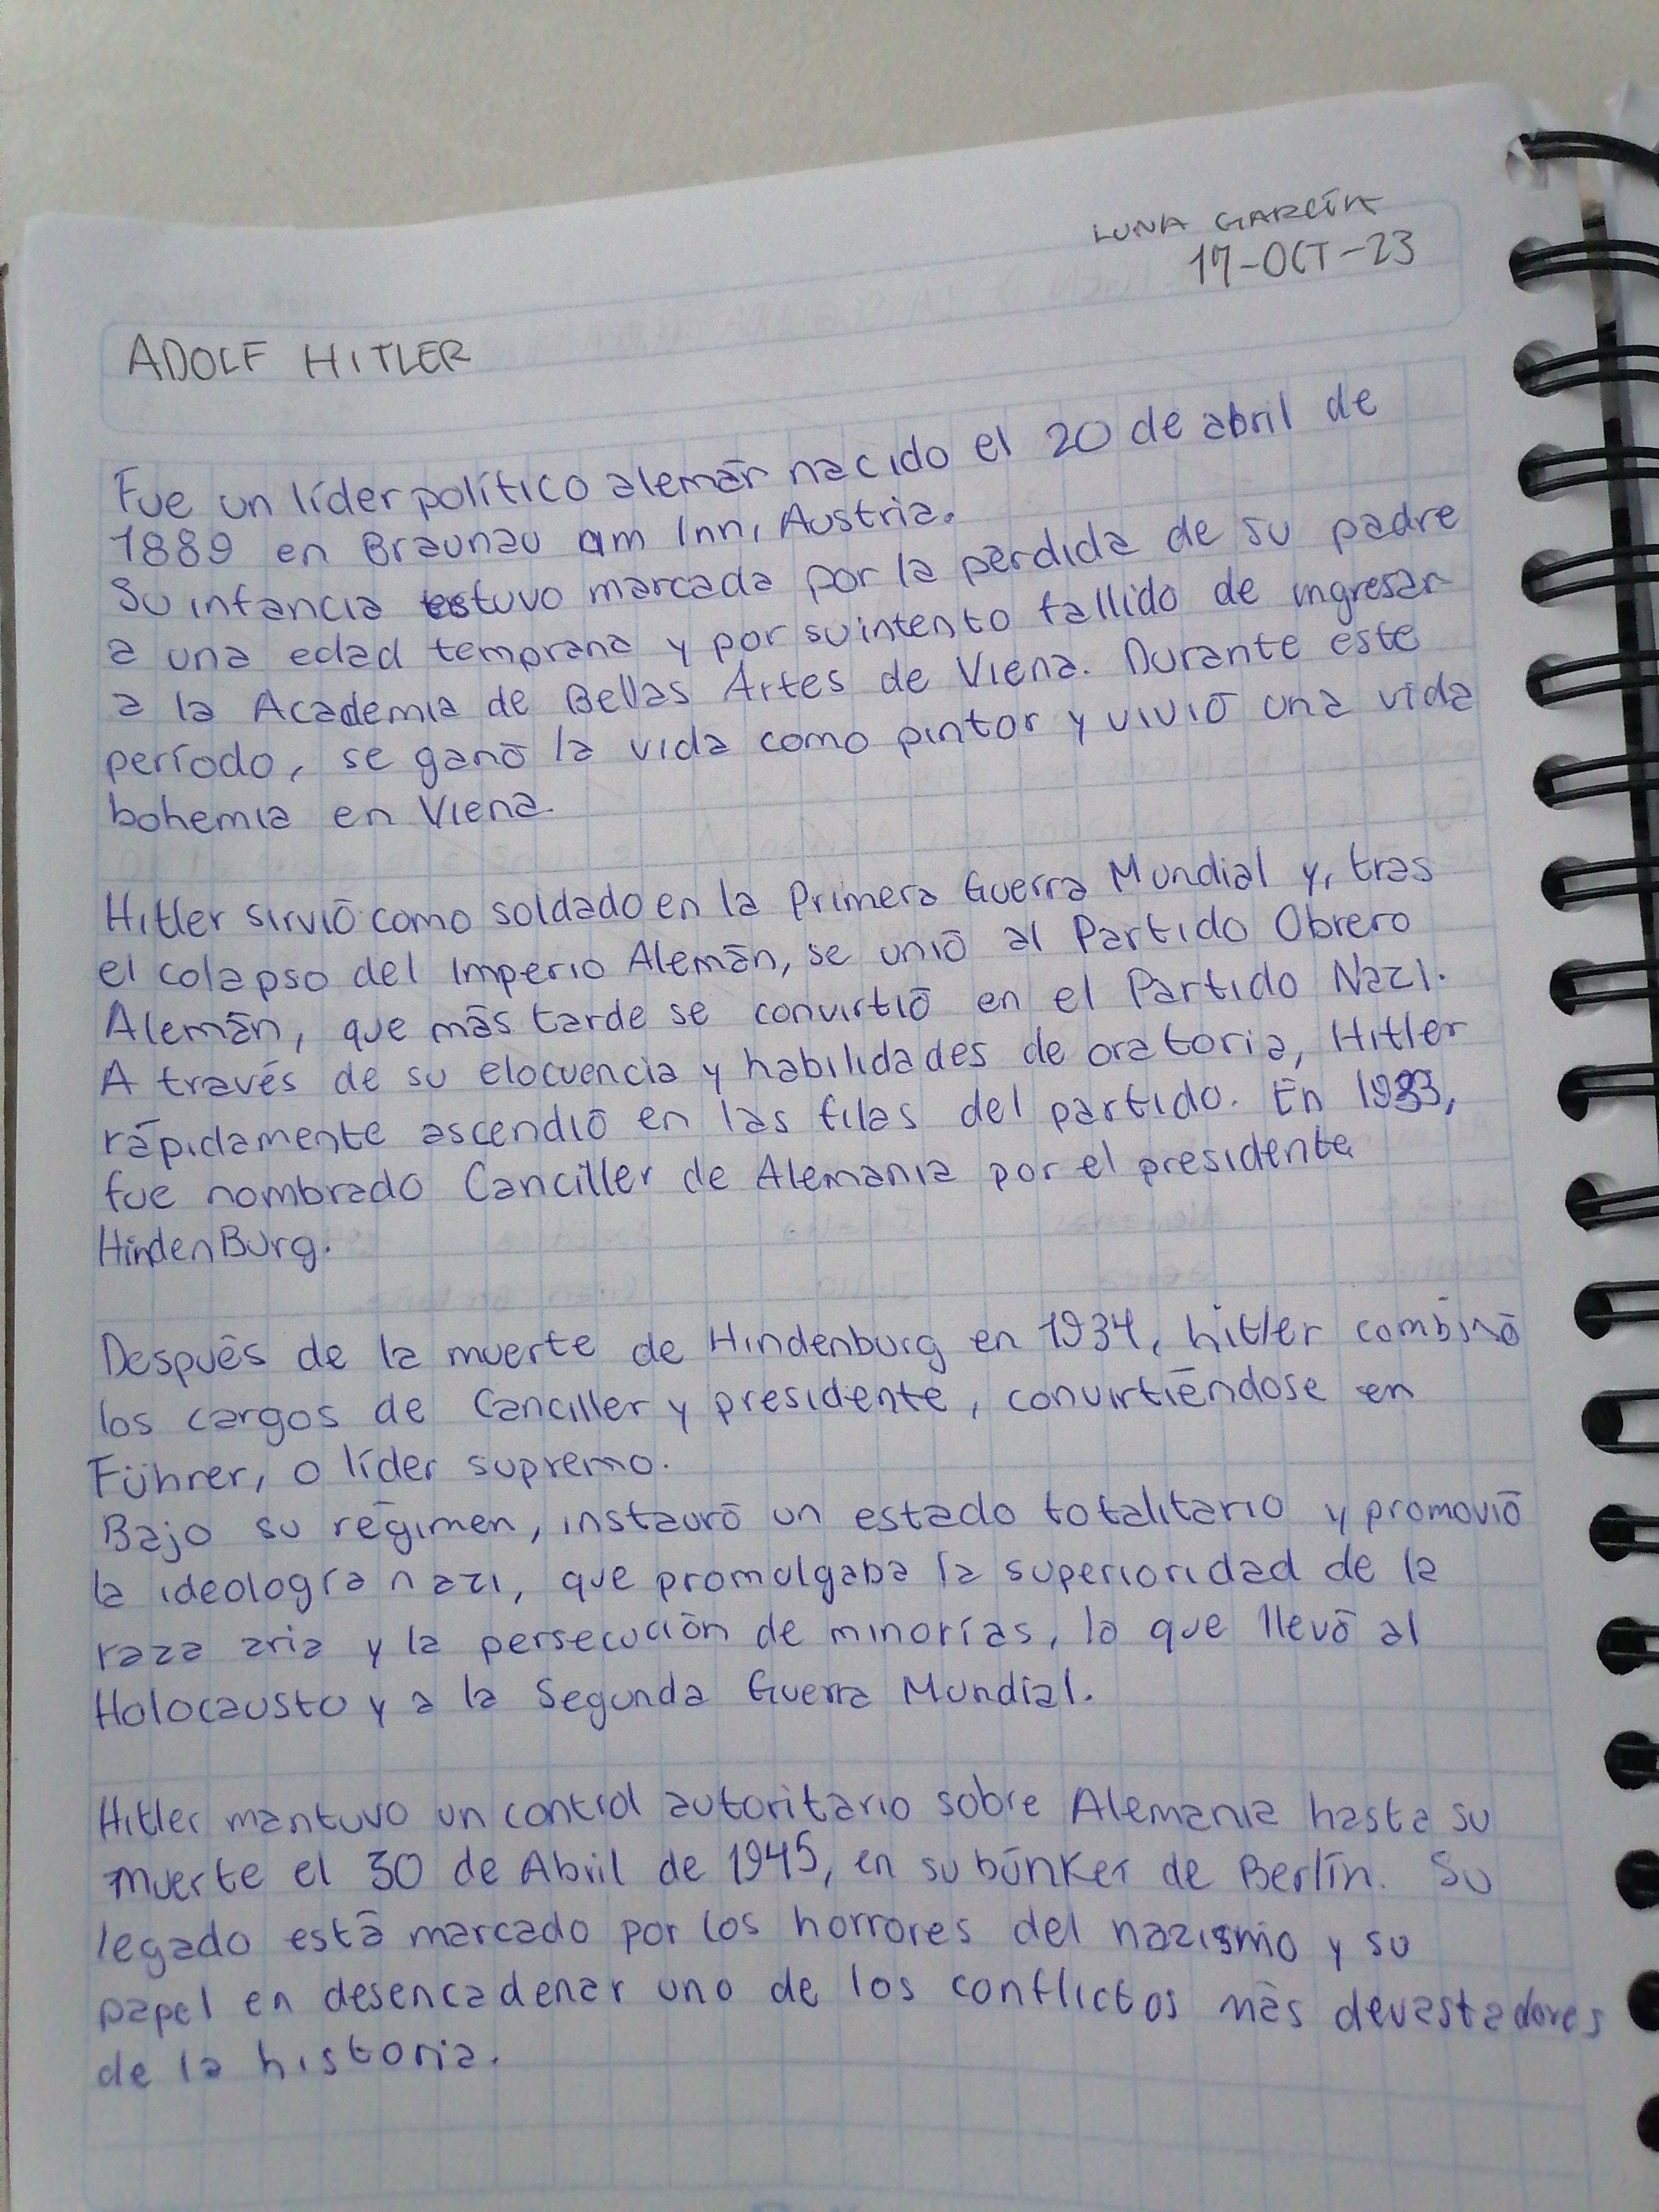 LUNA GARCÍA
17-OCT-23
ADOLF HITLER
Fue un líder político alemán nacido el 20 de abril de
1889 en Braunau am Inn, Austria.
Su infancia estuvo marcada por la pérdida de su padre
a una edad temprana y por su intento fallido de ingresar
a la Academia de Bellas Artes de Viena. Durante este
período, se ganó la vida como pintor y vivió una vida
bohemia en Viena.
Hitler sirvió como soldado en la Primera Guerra Mundial y, tras
el colapso del Imperio Alemán, se unió al Partido Obrero
Alemán, que más tarde se convirtió en el Partido Nazi.
A través de su elocuencia y habilidades de oratoria, Hitler
rápidamente ascendió en las filas del partido. En 1933,
fue nombrado Canciller de Alemania por el presidente
HindenBurg.
Después de la muerte de Hindenburg en 1934, hitler combinó
los cargos de Canciller y presidente, convirtiéndose en
Führer, o líder supremo.
Bajo su régimen, instauró un estado totalitario y promovió
la ideología nazi, que promulgaba la superioridad de la
raza aria y la persecución de minorías, lo que llevó al
Holocausto y a la Segunda Guerra Mundial.
Hitler mantuvo un control autoritario sobre Alemania hasta su
muerte el 30 de Abril de 1945, en su búnker de Berlín. Su
legado está marcado por los horrores del nazismo y su
papel en desencadenar uno de los conflictos más devastadores
de la historia.